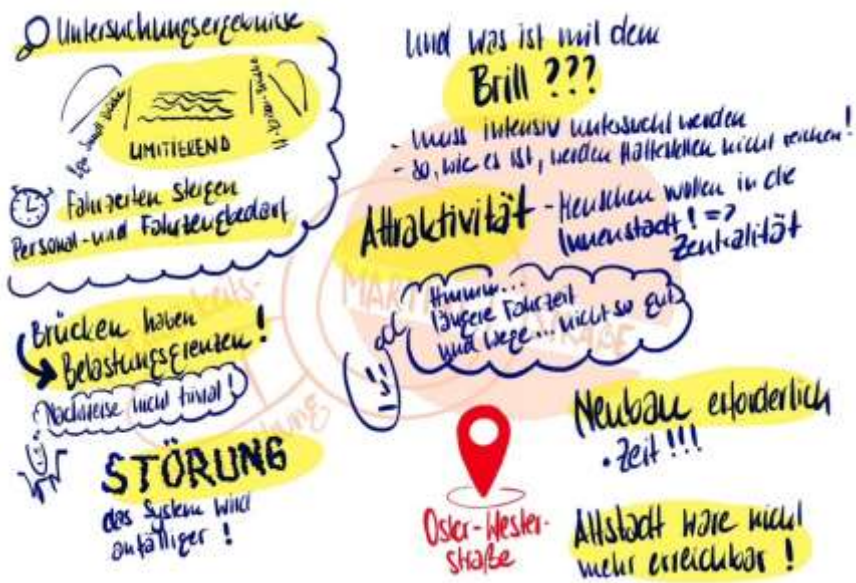 Untersuchungsergebnisse
LIMITIEREND
Fahrzeiten steigen
Personal- und Fahrzeugbedarf
Brücken haben
Belastungsgrenzen!
Nachweise nicht trivial!
STÖRUNG
das System wird
anfälliger!
Und was ist mit dem
Brill ???
- muss intensiv untersucht werden
- so, wie es ist, werden Haltestellen nicht reichen!
Attraktivität - Menschen wollen in die
Innenstadt! =>
Zentralität
Hmmm...
längere Fahrzeit
und Wege... nicht so gut
Neubau erforderlich
• Zeit!!!
Oster-Wester-
straße
Altstadt wäre nicht
mehr erreichbar!